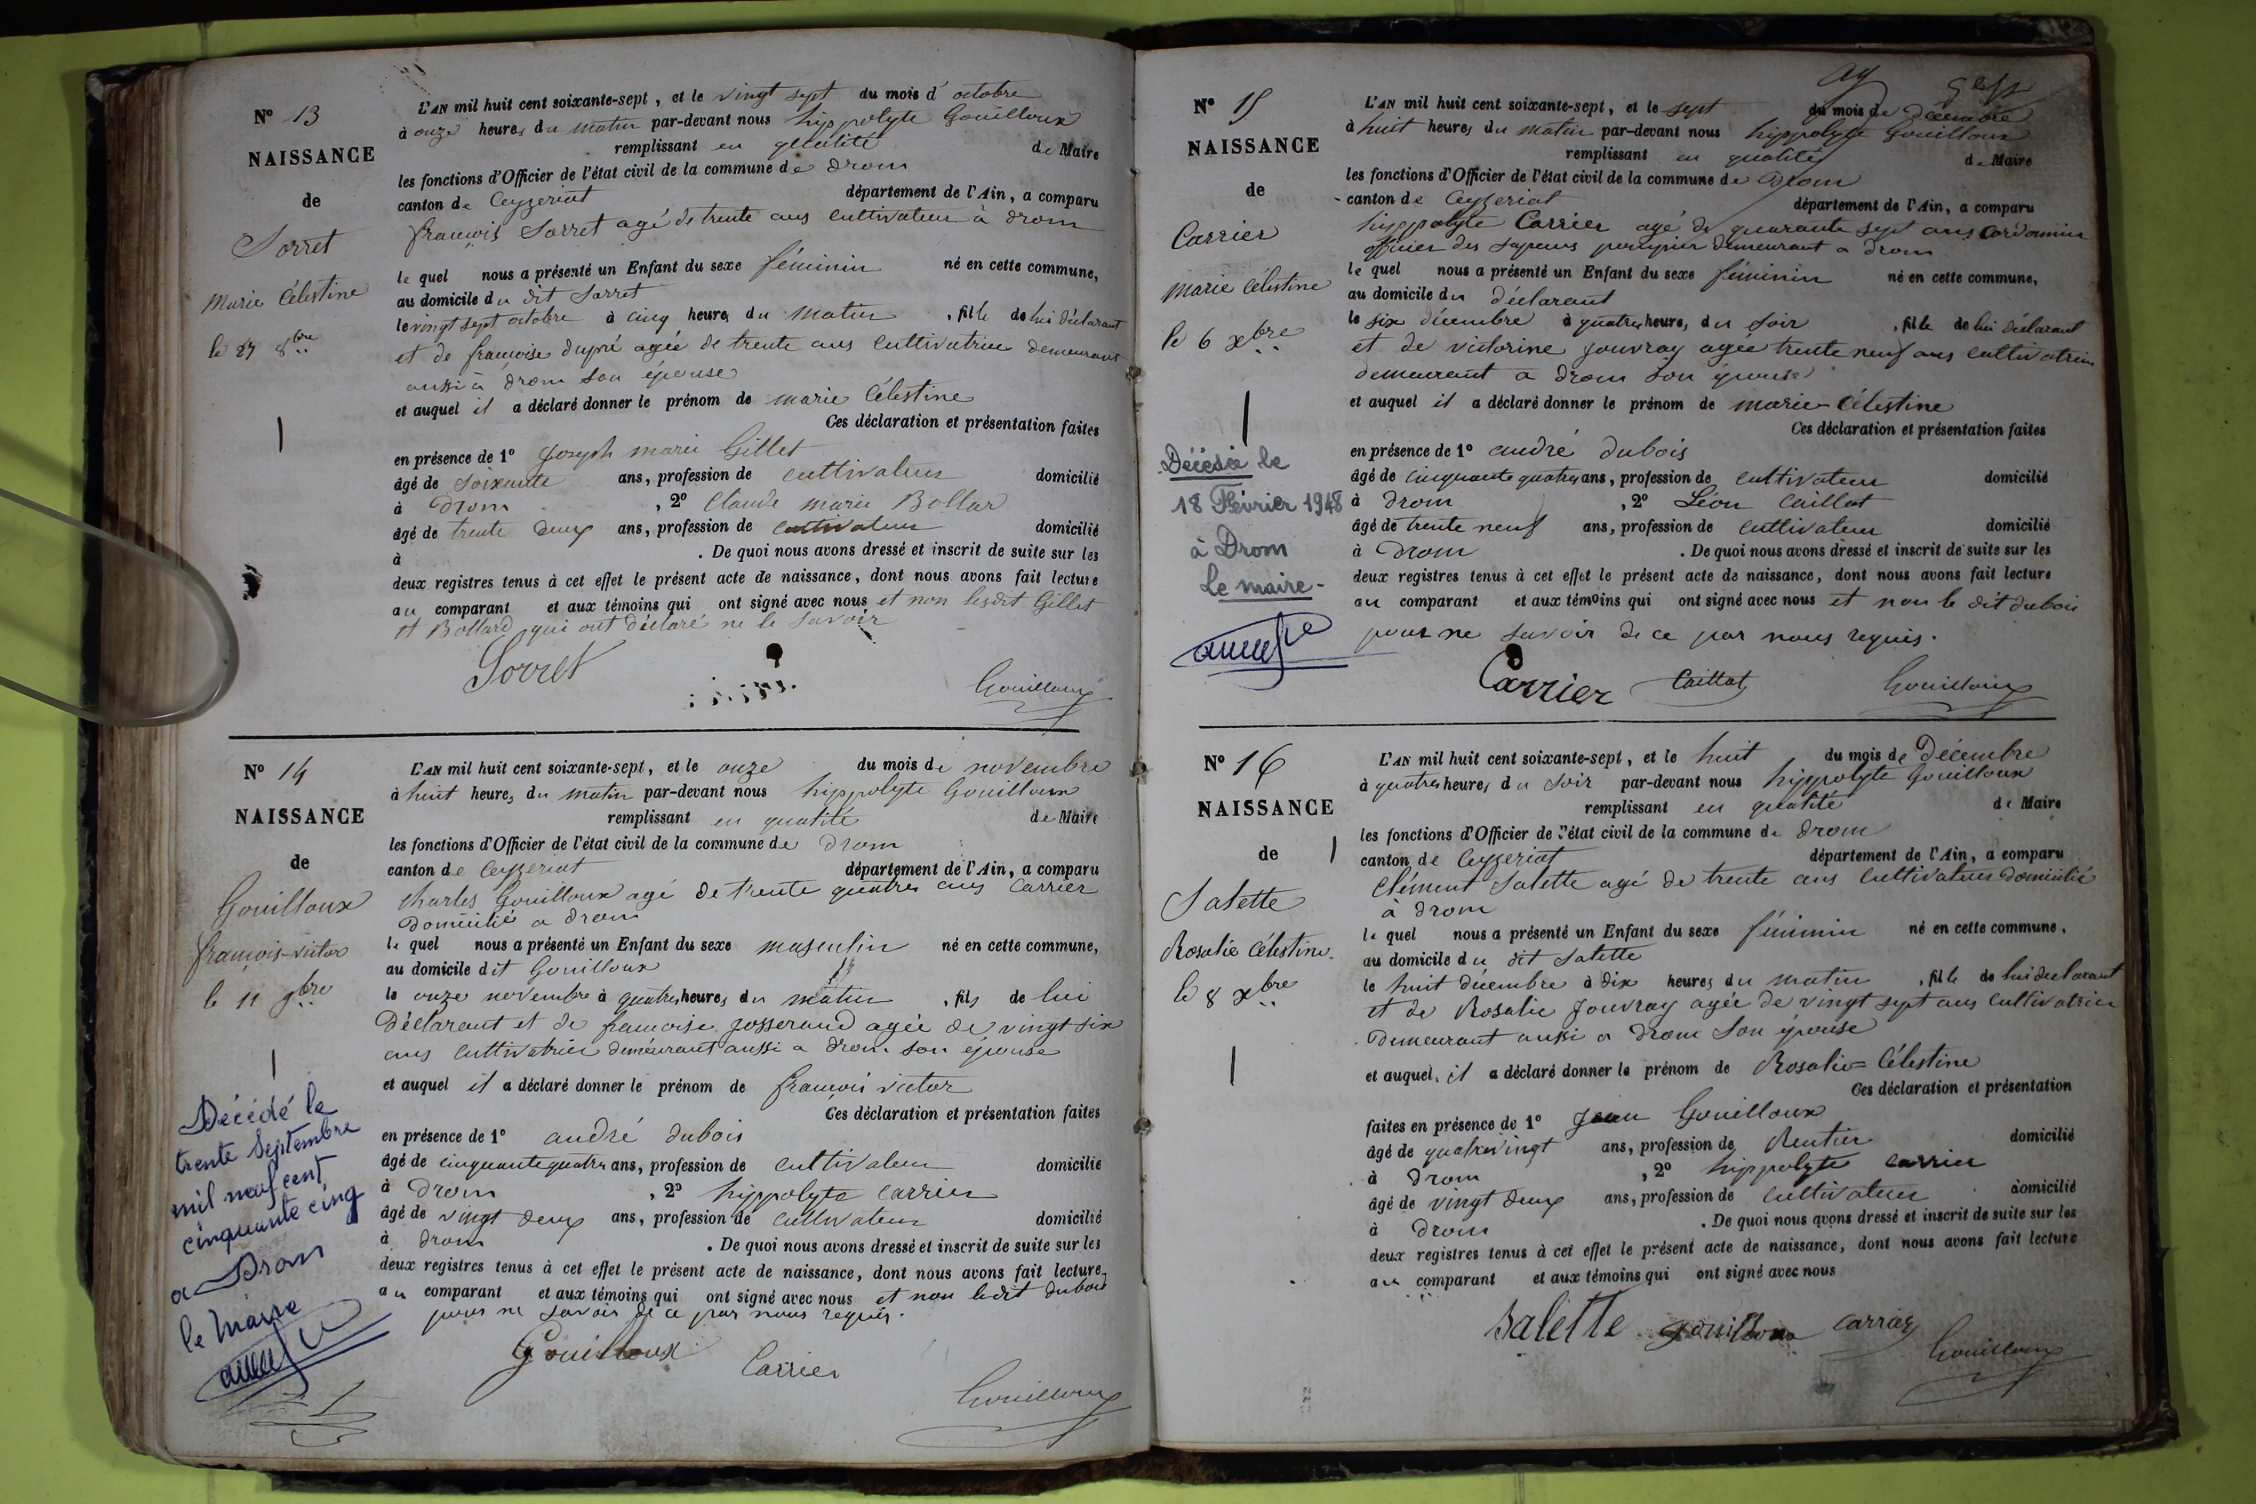 N° 13
NAISSANCE
de
Sorret
Marie Célestine
le 27 8bre
L'AN mil huit cent soixante-sept, et le vingt sept du mois d' octobre
à onze heures du matin par-devant nous hippolyte Gouilloux
remplissant en qualité de Maire
les fonctions d'Officier de l'état civil de la commune de drom
canton de Ceyzeriat département de l'Ain, a comparu
françois Sorret agé de trente ans cultivateur à drom
le quel nous a présenté un Enfant du sexe féminin né en cette commune,
au domicile du dit Sorret
le vingt sept octobre à cinq heures du matin, fille de lui déclarant
et de françoise dupré agée de trente ans cultivatrice demeurant
aussi à drom son épouse
et auquel il a déclaré donner le prénom de marie Célestine
Ces déclaration et présentation faites
en présence de 1° Joseph marie Gillet
âgé de soixante ans, profession de cultivateur domicilié
à Drom, 2° Claude marie Bollar
âgé de trente deux ans, profession de cultivateur domicilié
à . De quoi nous avons dressé et inscrit de suite sur les
deux registres tenus à cet effet le présent acte de naissance, dont nous avons fait lecture
au comparant et aux témoins qui ont signé avec nous et non lesdit Gillet
et Bollard qui ont déclaré ne le savoir
Sorret
Gouilloux
N° 14
NAISSANCE
de
Gouilloux
françois-victor
le 11 9bre
Décédé le
trente Septembre
mil neuf cent
cinquante cinq
a Drom
le Maire
L'AN mil huit cent soixante-sept, et le onze du mois de novembre
à huit heures du matin par-devant nous hippolyte Gouilloux
remplissant en qualité de Maire
les fonctions d'Officier de l'état civil de la commune de drom
canton de Ceyzeriat département de l'Ain, a comparu
charles Gouilloux agé de trente quatres ans Carrier
Domicilié a drom
le quel nous a présenté un Enfant du sexe masculin né en cette commune,
au domicile dit Gouilloux
le onze novembre à quatres heures du matin, fils de lui
Déclarant et de françoise Josserand agée de vingt six
ans cultivatrice demeurant aussi a drom son épouse
et auquel il a déclaré donner le prénom de françois victor
Ces déclaration et présentation faites
en présence de 1° andré dubois
âgé de cinquante quatres ans, profession de cultivateur domicilié
à Drom, 2° hippolyte carrier
âgé de vingt deux ans, profession de cultivateur domicilié
à drom. De quoi nous avons dressé et inscrit de suite sur les
deux registres tenus à cet effet le présent acte de naissance, dont nous avons fait lecture
au comparant et aux témoins qui ont signé avec nous et non ledit dubois
pour ne savoir de ce par nous requis.
Gouilloux
Carrier
Gouilloux
N° 15
NAISSANCE
de
Carrier
marie Célestine
le 6 xbre
Décédée le
18 Février 1948
à Drom
Le maire -
L'AN mil huit cent soixante-sept, et le sept du mois de décembre
à huit heures du matin par-devant nous hippolyte Gouilloux
remplissant en qualité de Maire
les fonctions d'Officier de l'état civil de la commune de Drom
canton de Ceyzeriat département de l'Ain, a comparu
hippolyte Carrier agé de quarante sept ans Cordonnier
officier des sapeurs pompier demeurant a drom
le quel nous a présenté un Enfant du sexe féminin né en cette commune,
au domicile du déclarant
le six décembre à quatres heures, du soir, fille de lui déclarant
et de victorine Jouvray agée trente neuf ans cultivatrice
demeurant a drom son épouse
et auquel il a déclaré donner le prénom de marie-Célestine
Ces déclaration et présentation faites
en présence de 1° andré dubois
âgé de cinquante quatres ans, profession de cultivateur domicilié
à drom, 2° Léon Caillat
âgé de trente neuf ans, profession de cultivateur domicilié
à Drom. De quoi nous avons dressé et inscrit de suite sur les
deux registres tenus à cet effet le présent acte de naissance, dont nous avons fait lecture
au comparant et aux témoins qui ont signé avec nous et non le dit dubois
pour ne savoir de ce par nous requis.
Carrier Caillat Gouilloux
N° 16
NAISSANCE
de
Salette
Rosalie Célestine.
le 8 xbre
L'AN mil huit cent soixante-sept, et le huit du mois de Décembre
à quatres heures du soir par-devant nous hippolyte Gouilloux
remplissant en qualité de Maire
les fonctions d'Officier de l'état civil de la commune de drom
canton de Ceyzeriat département de l'Ain, a comparu
Clément Salette agé de trente ans cultivateur Domicilié
à drom
le quel nous a présenté un Enfant du sexe féminin né en cette commune,
au domicile du dit Salette
le huit décembre à dix heures du matin, fille de lui declarant
et de Rosalie Jouvray agée de vingt sept ans cultivatrice
Demeurant aussi a drom son épouse
et auquel il a déclaré donner le prénom de Rosalie=Célestine
Ces déclaration et présentation
faites en présence de 1° Jean Gouilloux
âgé de quatrevingt ans, profession de Rentier domicilié
à Drom, 2° hippolyte carrier
âgé de vingt deux ans, profession de cultivateur domicilié
à Drom. De quoi nous avons dressé et inscrit de suite sur les
deux registres tenus à cet effet le présent acte de naissance, dont nous avons fait lecture
au comparant et aux témoins qui ont signé avec nous
Salette gouilloux Carrier
Gouilloux